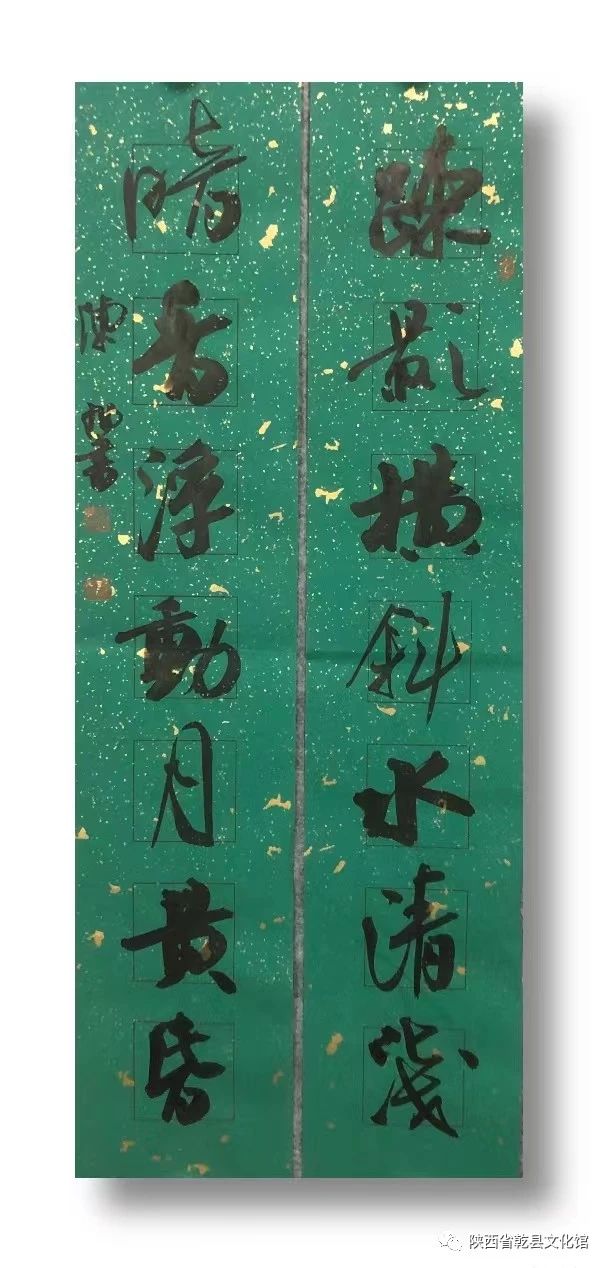 疎影横斜水清淺
暗香浮動月黄昏
陕西省乾县文化馆